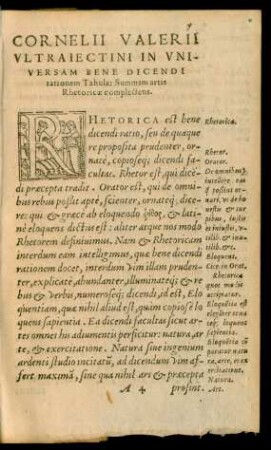 CORNELII VALERII
VLTRAIECTINI IN VNI-
VERSAM BENE DICENDI
rationem Tabula: Summam artis
Rhetoricæ complectens.
RHETORICA est bene
dicendi ratio, seu de quaque
re proposita prudenter, or-
natè, copioseq; dicendi fa-
cultas. Rhetor est, qui dice-
di præcepta tradit. Orator est, qui de omni-
bus rebus possit aptè, scienter, ornateq; dice-
re: qui & græcè ab eloquendo & la-
tinè eloquens dictus est: aliter atque nos modo
Rhetorem definiuimus. Nam & Rhetoricam
interdum eam intelligimus, quæ bene dicendi
rationem docet, interdum vim illam pruden-
ter, explicatè, abundanter, illuminateq; & re-
bus & verbis, numeroseq; dicendi, id est, Elo
quentiam, quæ nihil aliud est, quàm copiosè lo
quens sapientia. Ea dicendi facultas sicut ar-
tes omnes his adiumentis perficitur: natura, ar
te, & exercitatione. Natura siue ingenium
ardenti studio incitatū, ad dicendum vim af-
fert maximā, sine qua nihil ars & præcepta
A 4 prosint.
Rhetorica.
Rhetor.
Orator.
De omnib⁹
intellige
Eloquens.
Cic. in Orat.
Rhetorica
Eloquētia
sapientia.
Eloquētia
Natura.
Ars.